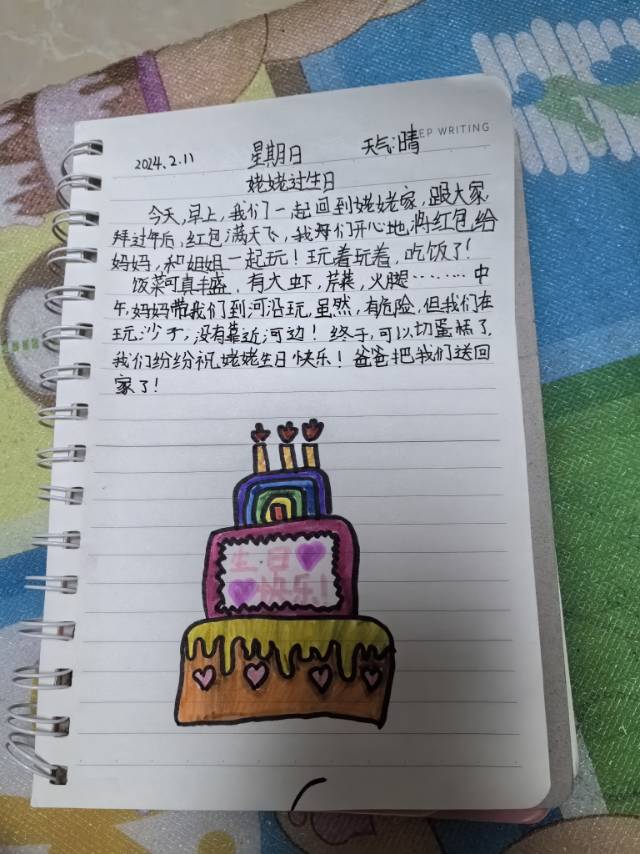 EP WRITING
2024.2.11 星期日 天气:晴
姥姥过生日
今天,早上,我们一起回到姥姥家,跟大家
拜过年后,红包满天飞,我每们开心地,将红包,给
妈妈,和姐姐一起玩!玩着玩着,吃饭了!
饭菜可真丰盛,有大虾,芹菜,火腿………中
午,妈妈带我们到河沿玩,虽然,有危险,但我们在
玩沙子,没有靠近河边!终于,可以切蛋糕了,
我们纷纷祝,姥姥生日快乐!爸爸把我们送回
家了!
生日
快乐!